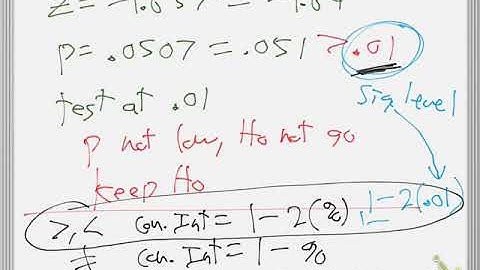 p = .0507 = .051 > .01
test at .01
Sig level
p not low, Ho not go
keep Ho
>, < Con. Int = 1 - 2(%) 1 - 2(.01)
≠ Con. Int = 1 - %